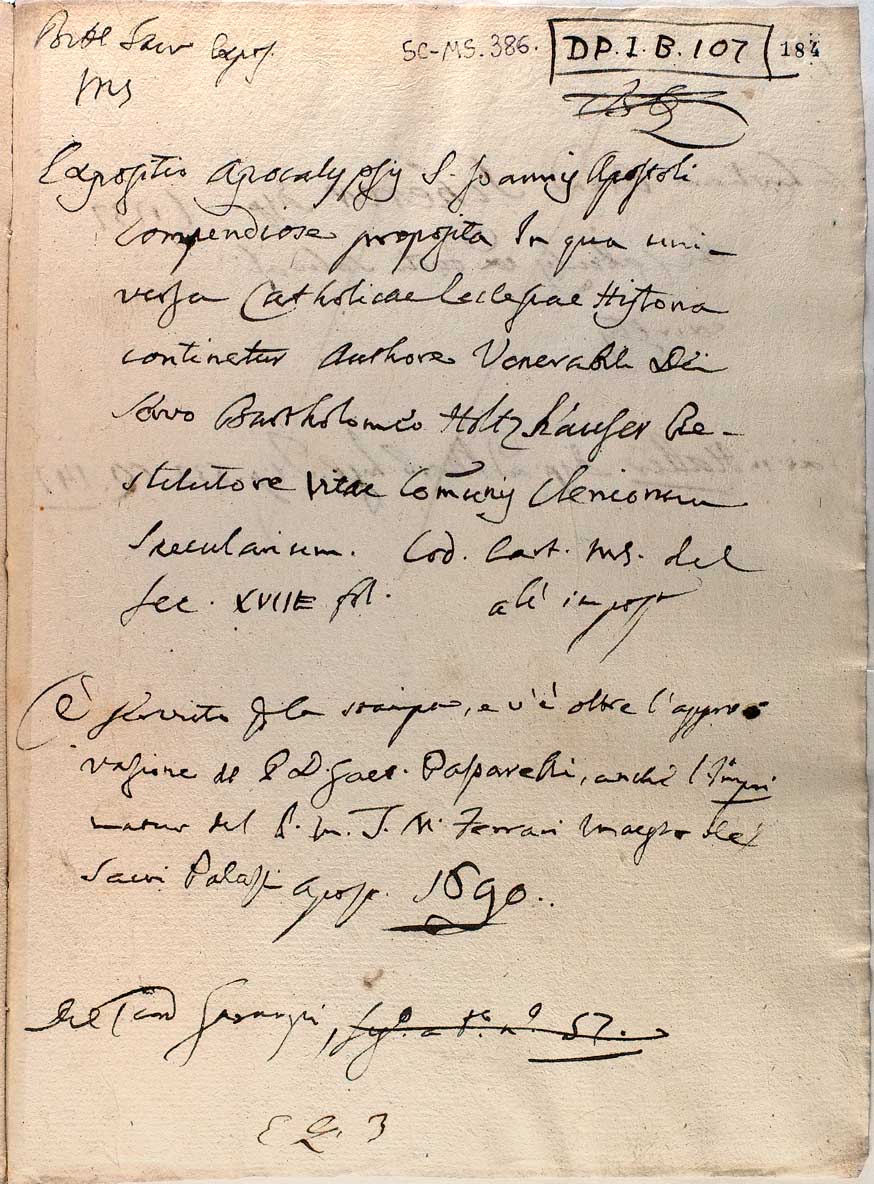 SC-MS. 386. DP. I. B. 107 184
MS
Expositio Apocalypsis S. Joannis Apostoli
compendiose proposita In qua uni-
versa Catholicae Eclesiae Historia
continetur Authore Venerabili Dei
servo Bartholomeo Holtzhauser Re-
stitutore vitae Comunis Clericorum
Saecularium. Cod. Cart. MS. del
sec. XVII fol.
È scritto per la stampa, e v'è oltre l'appro
vazione del P. D. Gaet. Pasparelli, anche l'Impri
matur del P. M. T. M. Ferrari Maestro del
Sacri Palazzi Apost. 1690..
Del Card Garampi, a n.° 57.
3